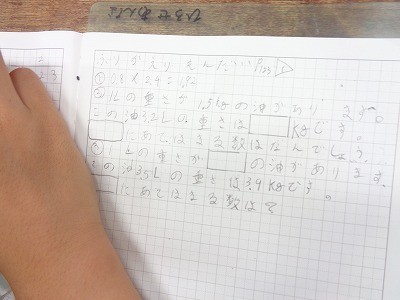 ふりかえりもんだい P123 1
① 0.8×2.4=1.92
② 1Lの重さが1.5kgの油があります。
この油3.2Lの重さは□kgです。
□にあてはまる数はなんでしょう。
③ 1Lの重さが□の油があります。
この油3.5Lの重さは3.9kgです。
□にあてはまる数は?